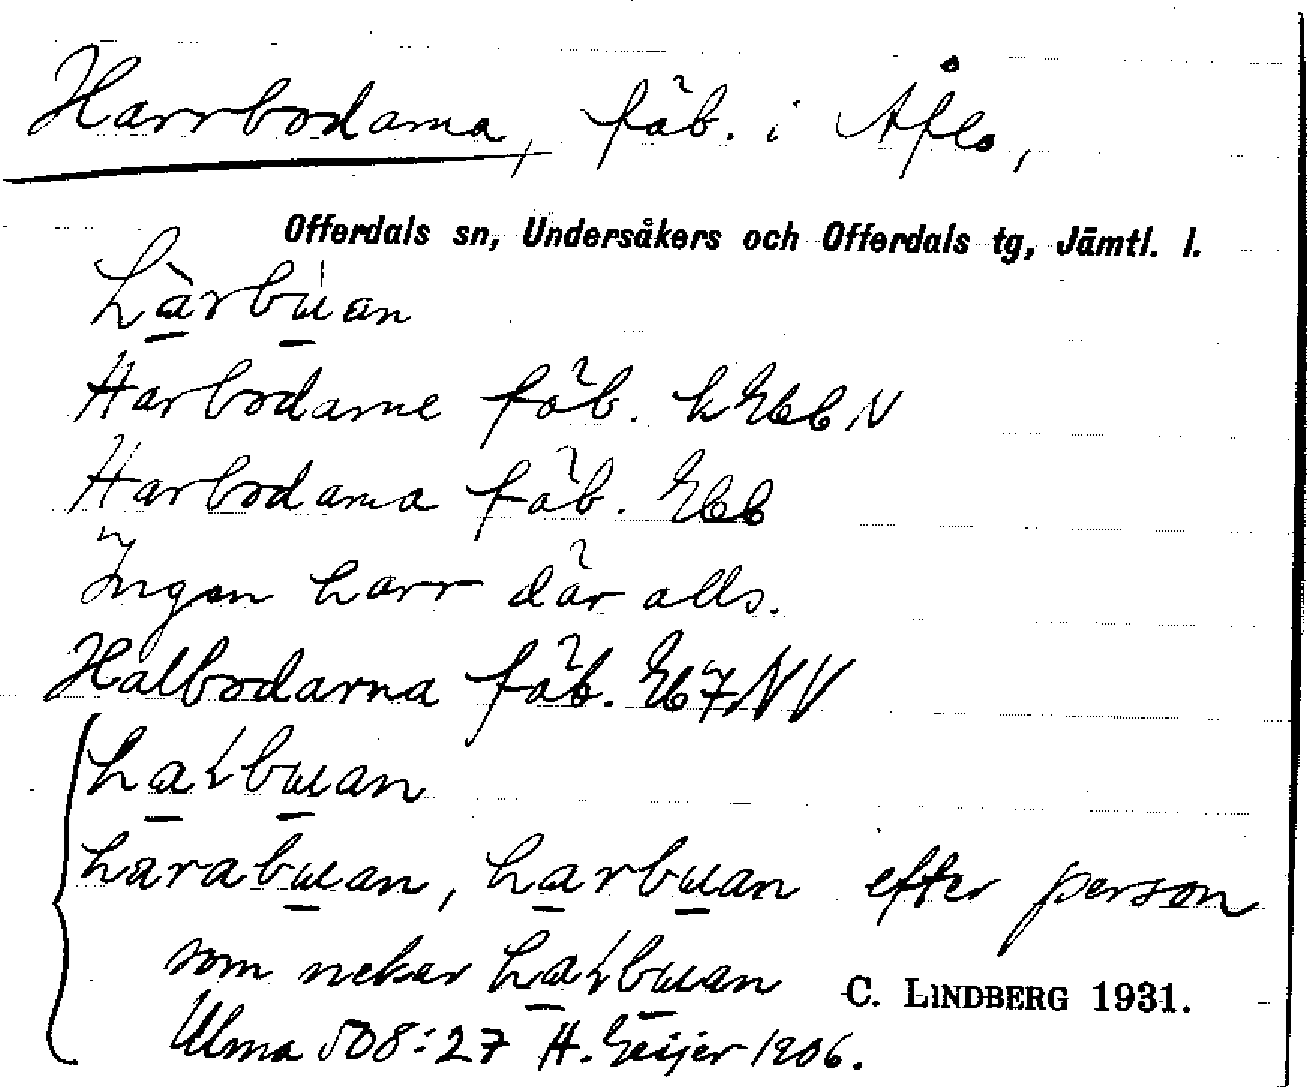 Harrbodarna, fäb. i Åflo,
Offerdals sn, Undersåkers och Offerdals tg, Jämtl. l.
hàrbu̍an
Harbodarne fäb. hEkbN
Harbodarna fäb. Ekb
Ingen harr där alls.
Halbodarna fäb. Eb7NV
haɽbuan
harabuan, harbuan efter person
som nekar haɽbuan
C. LINDBERG 1931.
Ulma 508:27 H. Geijer 1906.